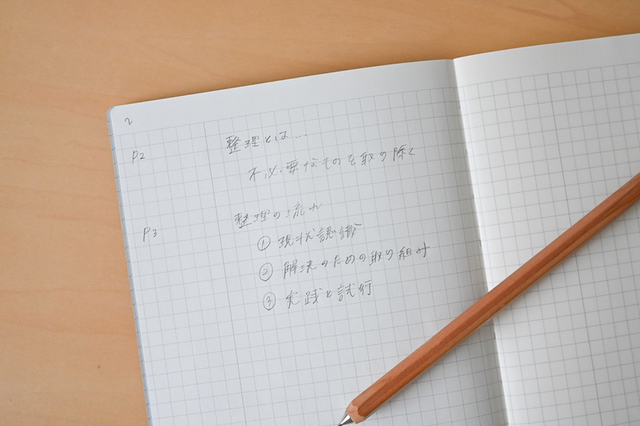 2
P2 整理とは...
不必要なものを取り除く
P3 整理の流れ
① 現状認識
② 解決のための取り組み
③ 実践と試行